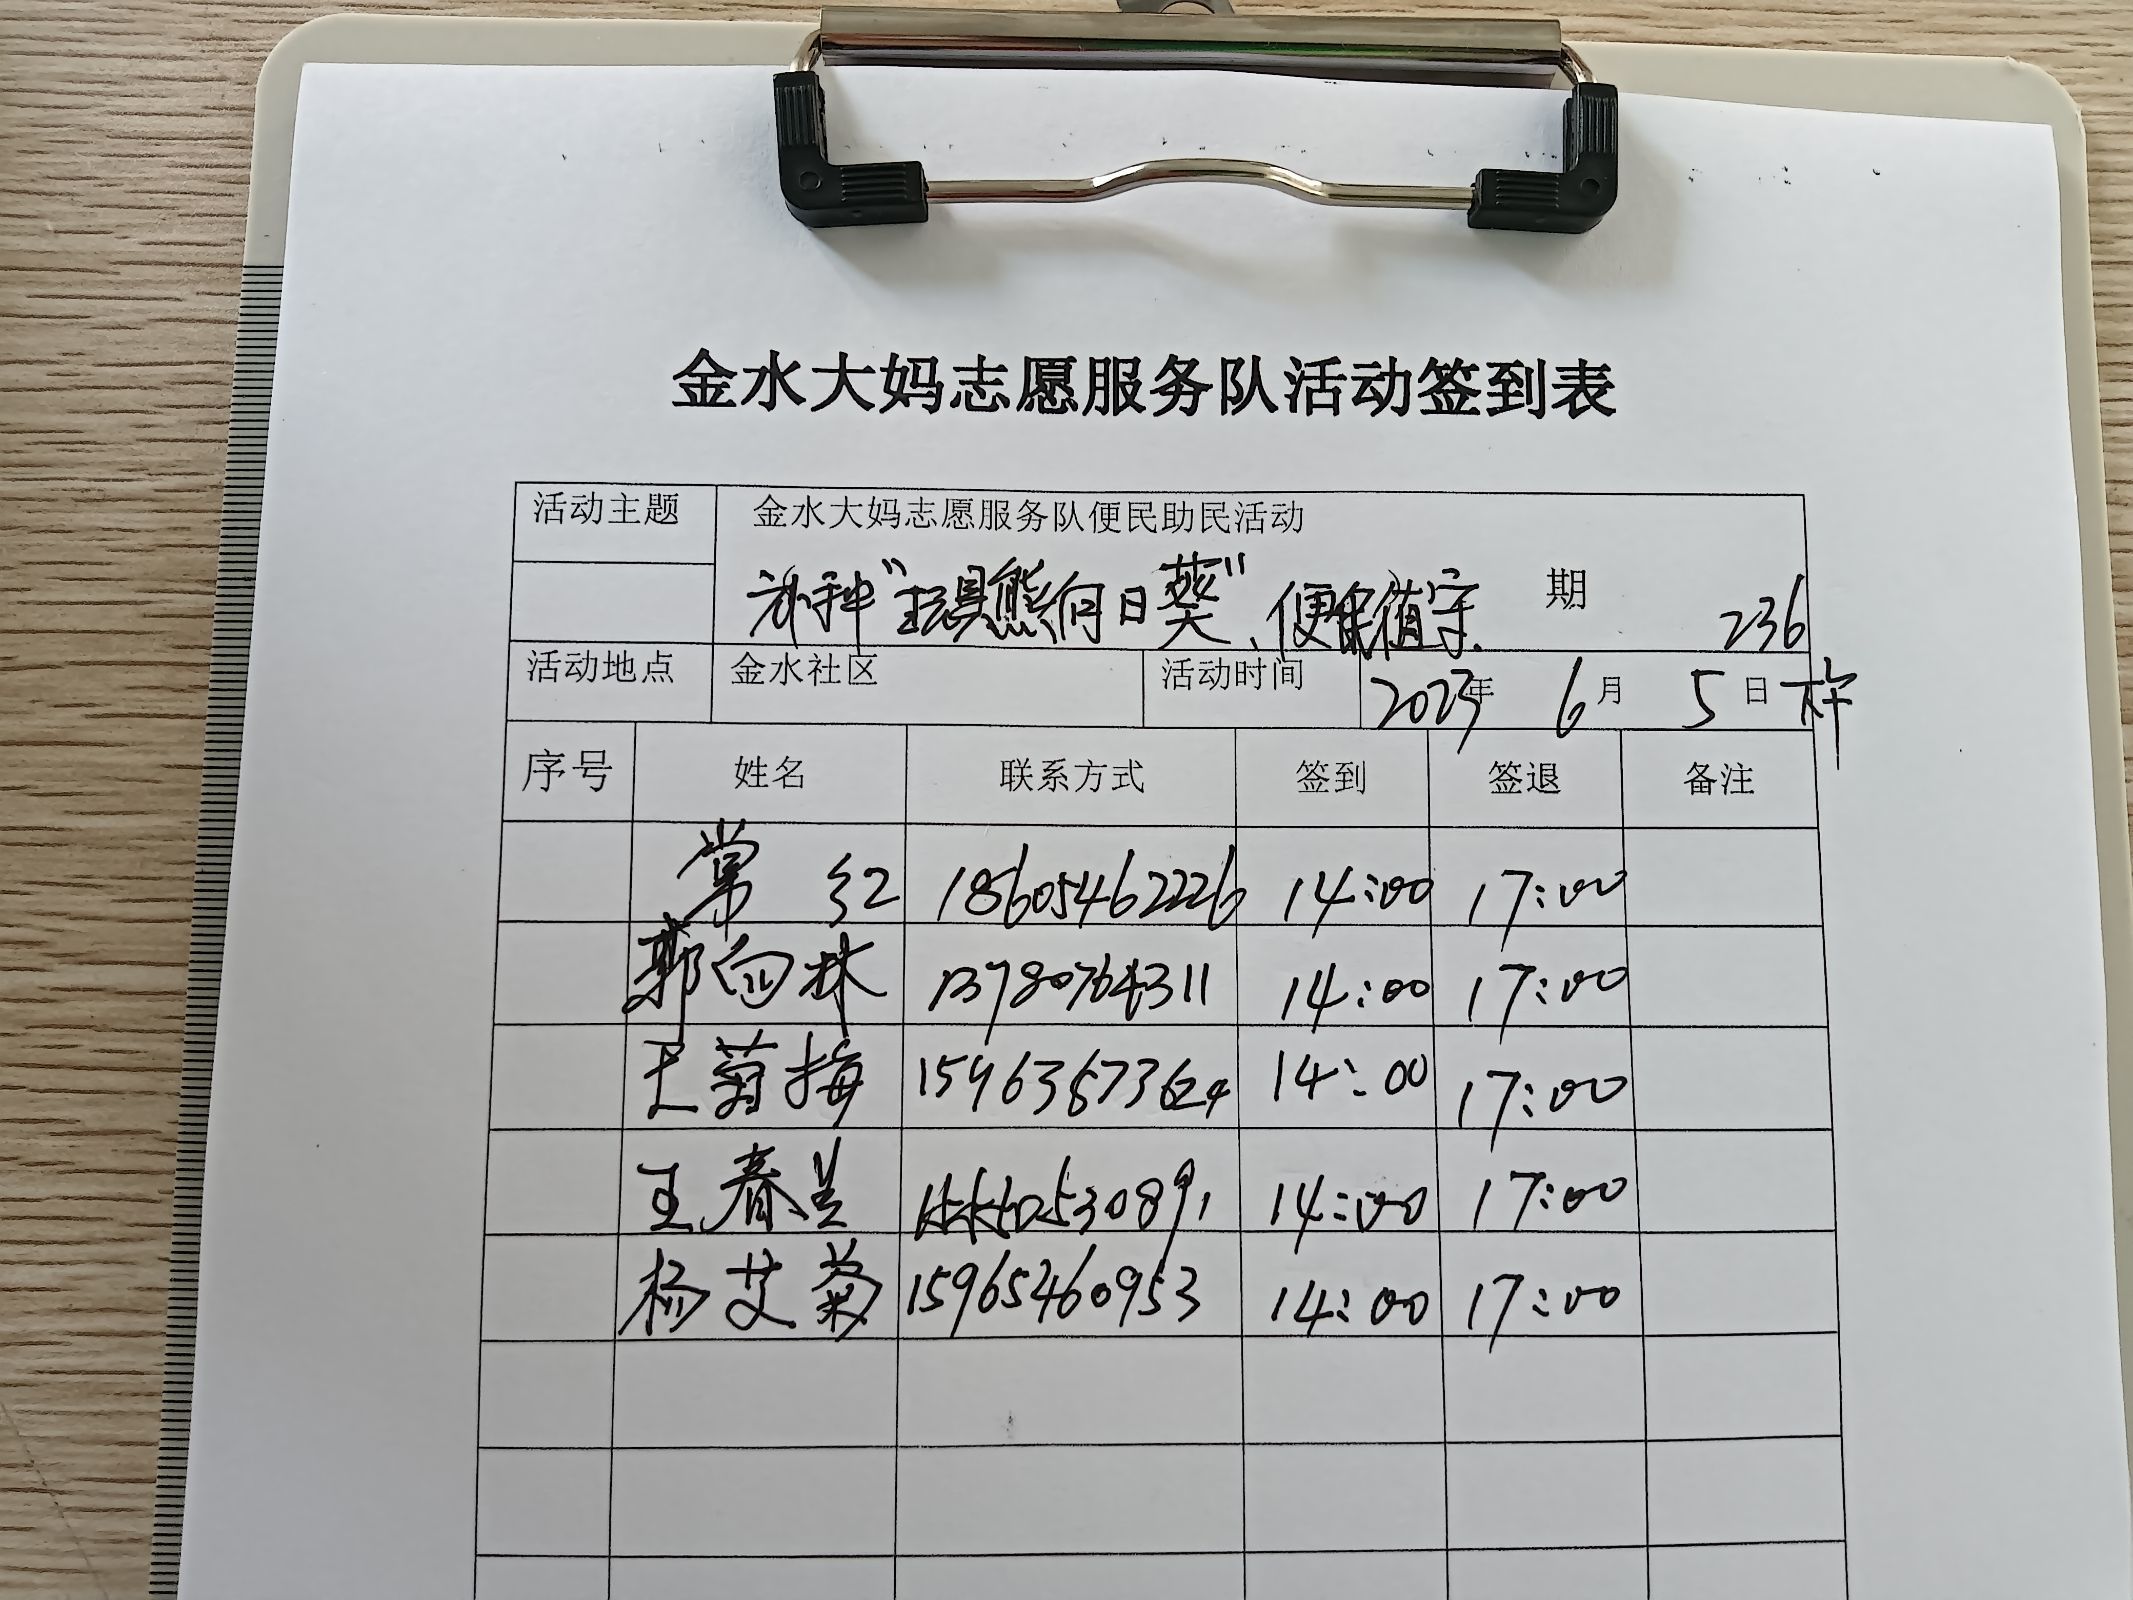 金水大妈志愿服务队活动签到表
活动主题 金水大妈志愿服务队便民助民活动
补种“玩具熊向日葵”、便民值守. 期 236
活动地点 金水社区 活动时间 2023年 6月 5日 下午
序号 姓名 联系方式 签到 签退 备注
常红 18605462226 14:00 17:00
郭向林 13780764311 14:00 17:00
王菊梅 14:00 17:00
王春兰 14:00 17:00
杨艾菊 15965460953 14:00 17:00